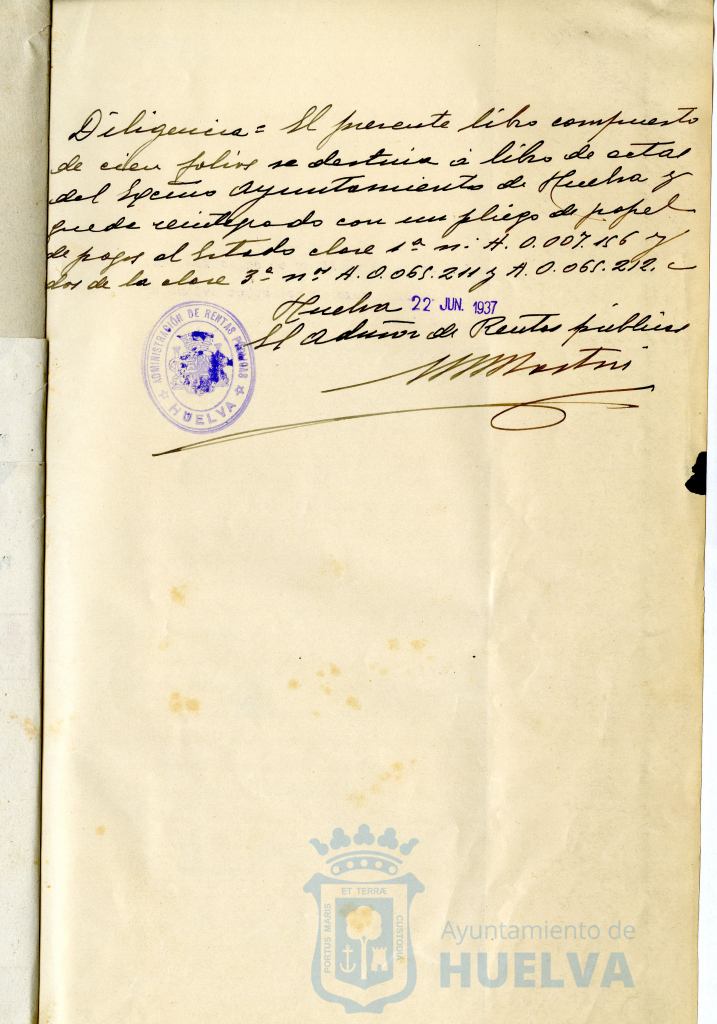 Diligencia = El presente libro compuesto
de cien folios se destina a libro de actas
del Excmo Ayuntamiento de Huelva y
queda reintegrado con un pliego de papel
de pagos al Estado clase 1ª n: A. 0.007.156 y
dos de la clase 3ª nos A. 0.065.211 y A. 0.065.212.
Huelva 22 JUN. 1937
El Admor de Rentas públicas
ADMINISTRACIÓN DE RENTAS PUBLICAS
HUELVA
ET TERRÆ
PORTUS MARIS
CUSTODIA
Ayuntamiento de
HUELVA